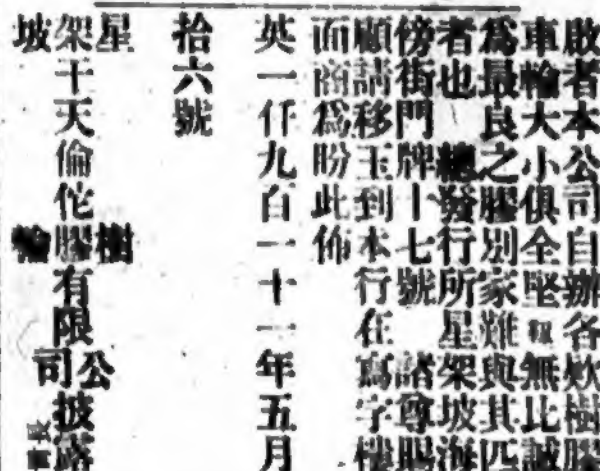 啟者本公司自辦各欵樹膠
車輪大小俱全堅無比誠
爲最良之膠別家難與其匹
者也 總發行所星架坡海
傍街門牌十七號 諸尊賜
顧請移玉到本行在寫字樓
面商爲盼此佈
英一仟九百一十一年五月
拾六號
星架坡干天倫佗樹膠輪有限公司披露